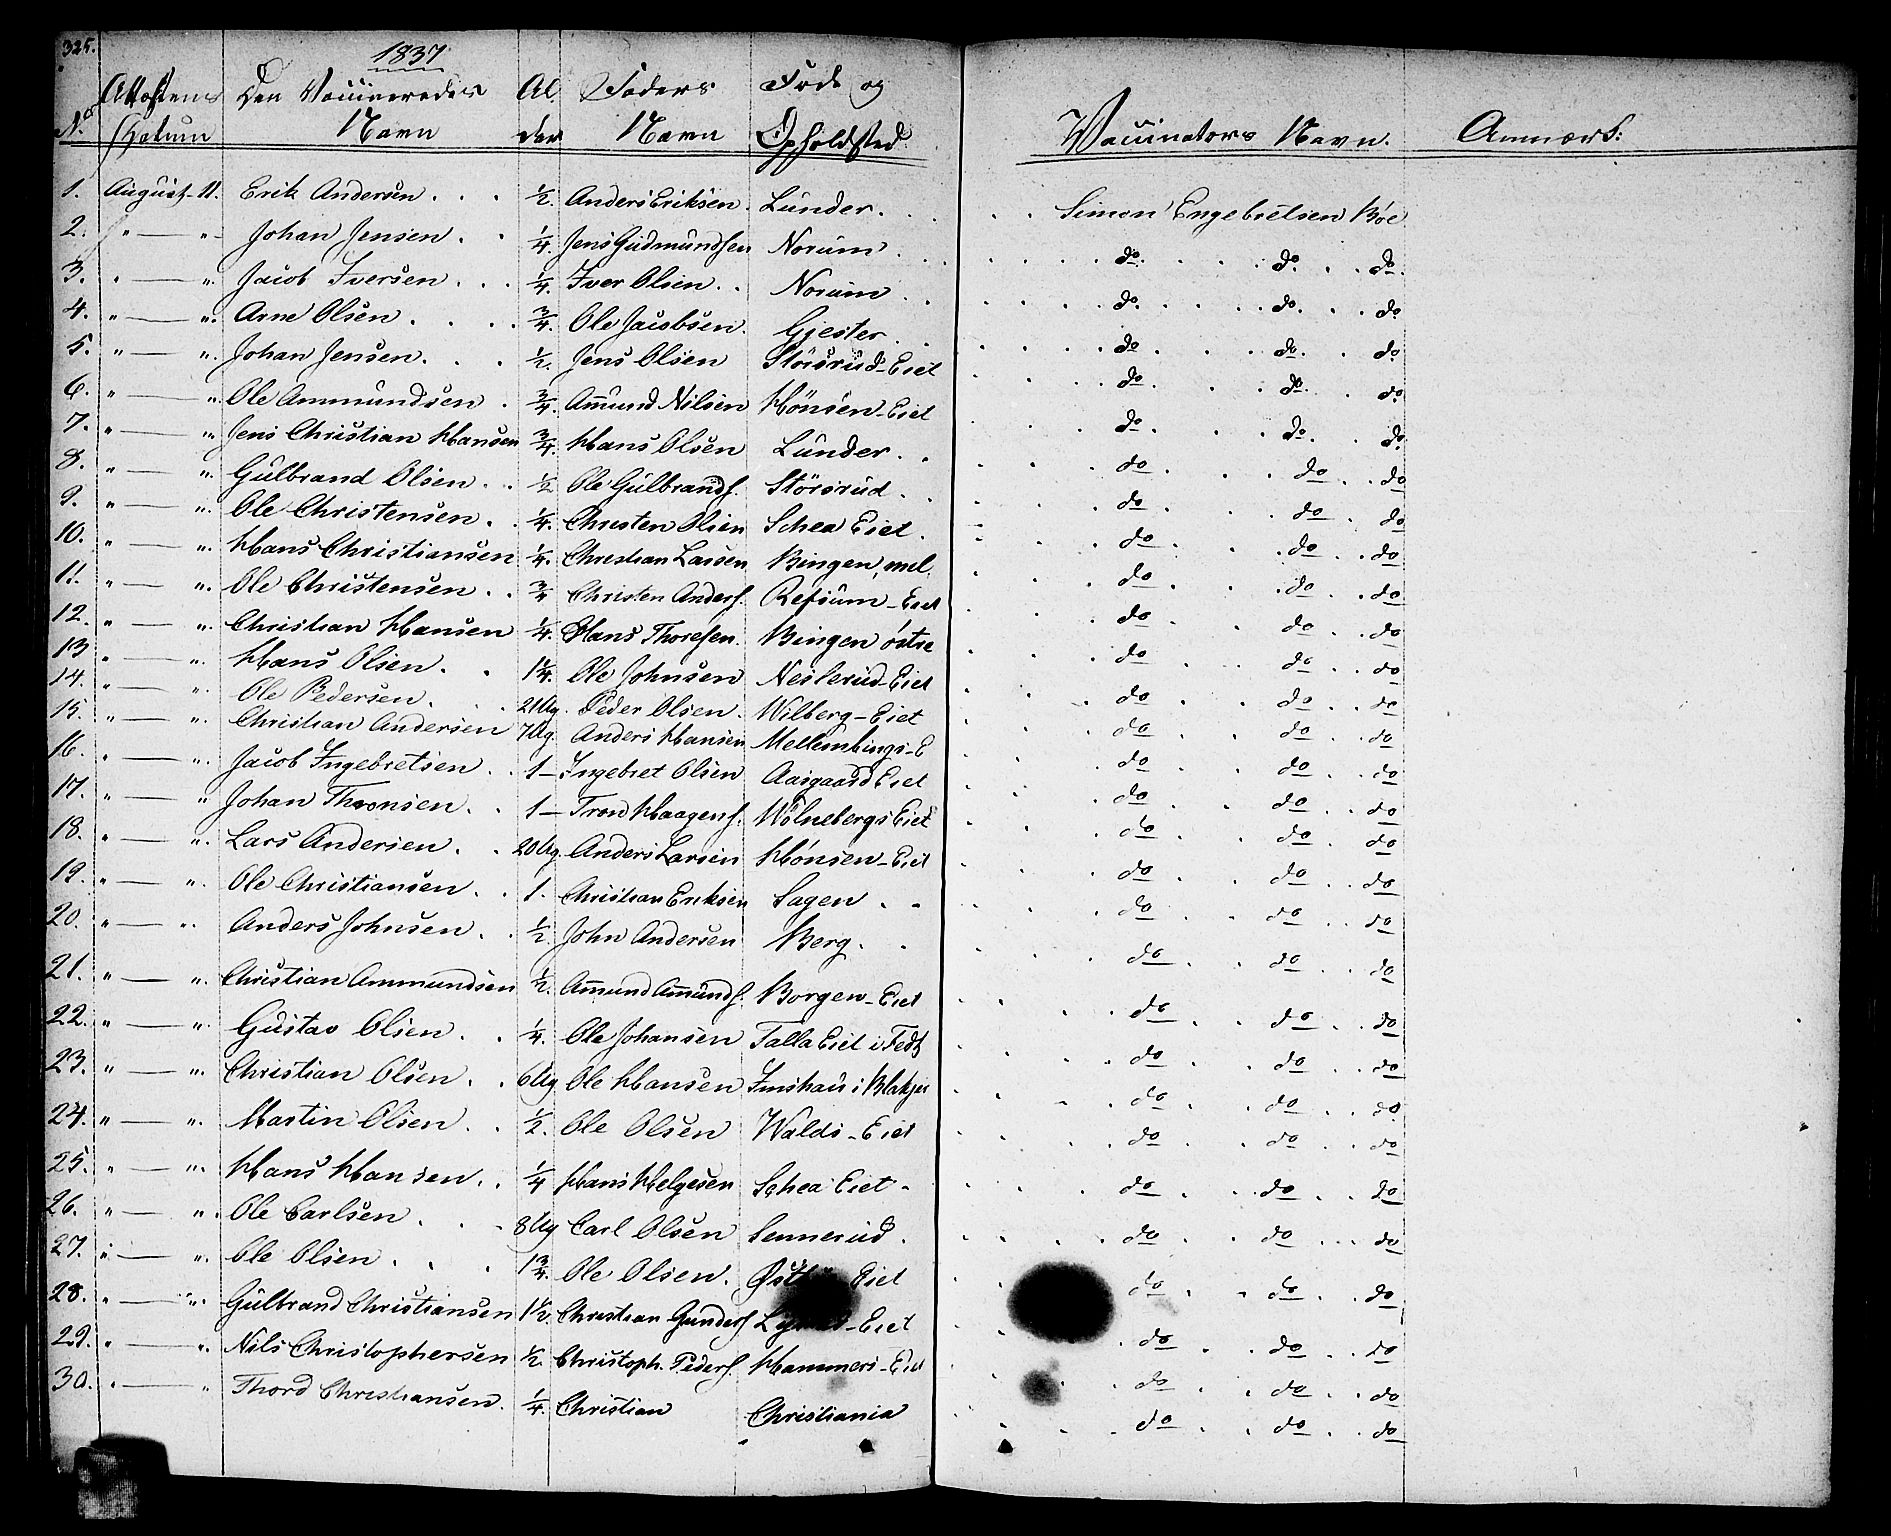 325.
1837
No Attestens Datum Den Vaccineredes Navn Alder Faders Navn Føde og Opholdsted Vaccinators Navn. Anmærk:
1. August 11. Erik Andersen . . . ½. Anders Eriksen. Lunder. . . . Simon Engebretsen Böe
2. " — " Johan Jensen . . ¼. Jens Gudmundsen Norum . . . do. do. do.
3. " — " Jacob Iversen . . . ¼. Iver Olsen . . Norum . . do. do. do
4. " — " Arne Olsen . . . . ¾. Ole Jacobsen. Gjester . . do do. do
5. " — " Johan Jensen. . . ½. Jens Olsen Störsrud-Eiet do. do. do
6. " — " Ole Ammundsen . ¾. Amund Nilsen Hönsen-Eiet do. do. do
7. " — " Jens Christian Hansen ¾. Hans Olsen Lunder. . do do do
8. " — " Gulbrand Olsen . . ½ Ole Gulbrands. Störsrud . . do do do
9. " — " Ole Christensen . . ¼. Christen Olsen Schea Eiet. do do do
10. " — " Hans Christiansen ¼. Christian Larsen Bingen, mel. do do do
11. " — " Ole Christensen . . ¾ Christen Anders. Refsum-Eiet do do do
12. " — " Christian Hansen ¼. Hans Thoresen. Bingen östre do do do
13 " — " Hans Olsen . . 1¼. Ole Johnsen Neslerud-Eiet do do do
14. " — " Ole Pedersen . . . 21 Ug. Peder Olsen. Wilberg-Eiet do do do
15. " — " Christian Andersen 7 Ug. Anders Hansen Mellembings-E do do do
16. " — " Jacob Ingebretsen . . 1— Ingebret Olsen Aasgaard Eiet do do do
17. " — " Johan Thronsen . . 1— Tron Haagens. Wölnebergs Eiet do do do
18. " — " Lars Andersen . . 20 Ug. Anders Larsen Hönsen-Eiet do do do
19. " — " Ole Christiansen . . 1. Christian Eriksen Sagen . . do do do
20. " — " Anders Johnsen . . ½. John Andersen Berg. . do do do
21. " — " Christian Ammundsen ½. Amund Amunds. Borgen-Eiet do do do
22. " — " Gustav Olsen . . ¼. Ole Johansen Talla Eiet i Fedt do do do
23. " — " Christian Olsen . . 6 Ug Ole Hansen i do do do
24. " — " Martin Olsen . . ½. Ole Olsen Walds-Eiet do do do
25. " — " Hans Hansen . . ¼ Hans Helgesen Schea Eiet - do do do
26. " — " Ole Carlsen . . . 8 Ug Carl Olsen Sennerud . do do do
27. " — " Ole Olsen . . . 1¾. Ole Olsen. Eiet do do do
28. " — " Gulbrand Christiansen 1½. Christian Gunders -Eiet do do do
29. " — " Nils Christophersen ½. Christoph. Peders. Hammers-Eiet do do do
30. " — " Thord Christiansen. ¼. Christian Christiania do do do